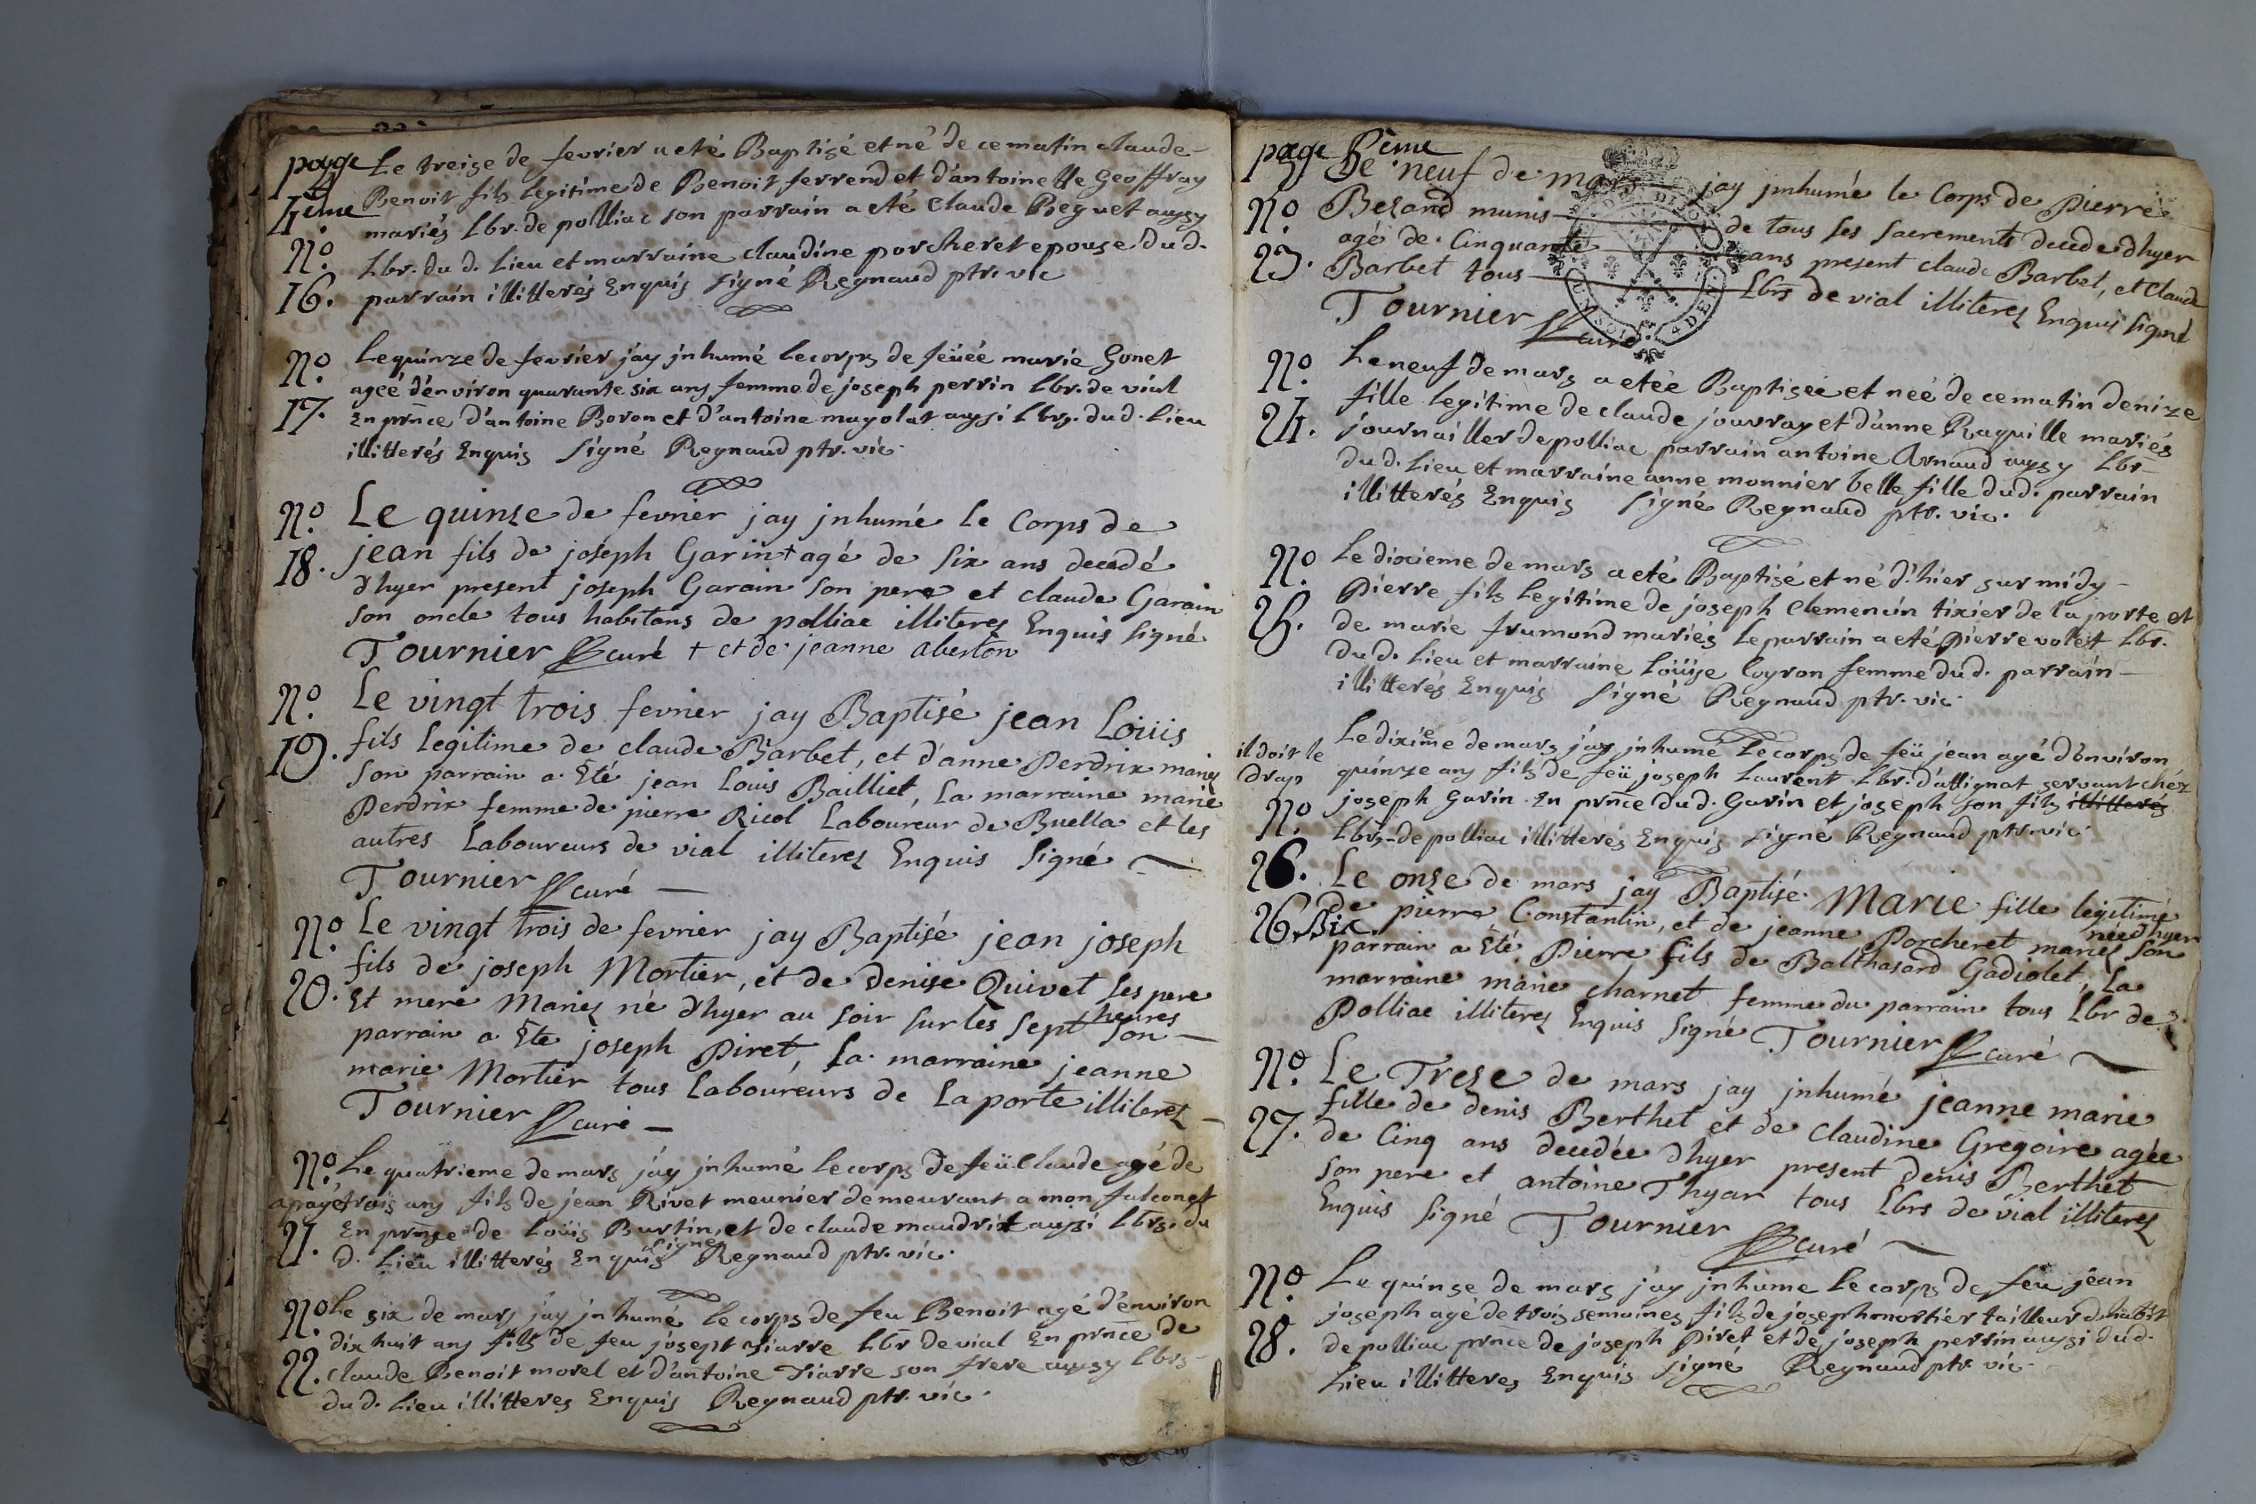 page
4
4eme
Le treise de fevrier a eté Baptisé et né de ce matin claude-
Benoit fils legitime de Benoit ferrend et d'antoinette Geoffray
mariés Lbr. de polliac son parrain a eté Claude Reguet aussy
N°
16.
Lbr. du d. Lieu et marraine claudine porcheret epouse du d.
parrain illitterés Enquis signé Regnaud ptr. vic
N°
17.
Le quinze de fevrier j'ay jnhumé le corps de feüée marie Gonet
ageé d'environ quarante six ans femme de joseph perrin Lbr. de vial
En prnce d'antoine Boron et d'antoine magolat aussi Lbrs. du d. Lieu
illitterés Enquis signé Regnaud ptr. vic.
N°
18.
Le quinse de fevrier jay jnhumé le Corps de
jean fils de joseph Garin + agé de six ans decedé
d'hyer present joseph Garain son pere et claude Garain
son oncle tous habitans de polliac illiteres Enquis signé
Tournier curé + et de jeanne aberton
N°
19.
Le vingt trois fevrier jay Baptisé jean Loüis
fils legitime de claude Barbet, et d'anne Perdrix mariez
son parrain a Eté jean Louis Bailliet, la marraine marie
Perdrix femme de pierre Ricol Laboureur de Buella et les
autres Laboureurs de vial illiterez Enquis signé
Tournier curé
N°
20.
Le vingt trois de fevrier jay Baptisé jean joseph
fils de joseph Mortier, et de Denise Quivet ses pere
Et mere Mariez né d'hyer au soir sur les sept heures son
parrain a Eté joseph Piret, la marraine jeanne
marie Mortier tous Laboureurs de Laporte illiterez
Tournier curé
N°
a payé
21.
Le quatrieme de mars j'ay jnhumé le corps de feü Claude agé de
trois ans fils de jean Rivet meunier demeurant a mon falconet
En prnce de Loüis Burtin, et de claude maudrix aussi Lbrs. du
d. Lieu illitterés Enquis signé Regnaud ptr. vic.
N°
22.
Le six de mars j'ay jnhumé le corps de feu Benoit agé d'environ
dix huit ans fils de feu josept Tiarre Lbr de vial En prnce de
claude Benoit morel et d'antoine Tiarre son frere aussy Lbrs
du d. Lieu illitteres Enquis Regnaud ptr. vic.
page 5eme
N°
23.
Le neuf de mars jay jnhumé le Corps de Pierre
Besand munis de tous ses sacrements decedé d'hyer
agé de Cinquante ans present claude Barbet, et Claude
Barbet tous Lbrs de vial illiterez Enquis signé
Tournier curé
N°
24.
Le neuf de mars a etée Baptisée et neé de ce matin denize
fille legitime de claude jouvray et d'anne Raquille mariés
journailler de polliac parrain antoine Arnaud aussy Lbr-
du d. Lieu et marraine anne monnier belle fille du d. parrain
illitterés Enquis signé Regnaud ptr. vic.
N°
25.
Le dixieme de mars a eté Baptisé et né d'hier sur midy-
Pierre fils legitime de joseph Clemencin tixier de la porte et
de marie frumond mariés le parrain a eté Pierre volet Lbr.
du d. Lieu et marraine Loüise Coyron femme du d. parrain
illitterés Enquis signé Regnaud ptr. vic.
il doit le
drap
N°
26.
Le dixieme de mars j'ay jnhumé le corps de feü jean agé d'environ
quinze ans fils de feü joseph Laurent Lbr. d'attignat servant chéz
joseph Garin En prnce du d. Garin et joseph son fils illitterés
Lbrs- de polliac illitterés Enquis signé Regnaud ptr. vic.
26 Bis.
Le onse de mars jay Baptisé Marie fille legitime
de pierre Constantin, et de jeanne Porcheret mariez née d'hyer son
parrain a Eté Pierre fils de Balthasard Gadiolet, la
marraine marie charnet femme du parrain tous Lbr de
Polliac illiterez Enquis signé Tournier curé
N°
27.
Le Trese de mars jay jnhumé jeanne marie
fille de denis Berthet et de claudine Gregoire agée
de Cinq ans decedée d'hyer present denis Berthet
son pere et antoine Thyar tous Lbrs de vial illiterez
Enquis signé Tournier curé
N°
28.
Le quinse de mars j'ay jnhumé le corps de feu jean
joseph agé de trois semaines fils de joseph mortier tailleur d'habit
de polliac prnce de joseph Piret et de joseph perrin aussi du d.
Lieu illitteres Enquis signé Regnaud ptr vic.